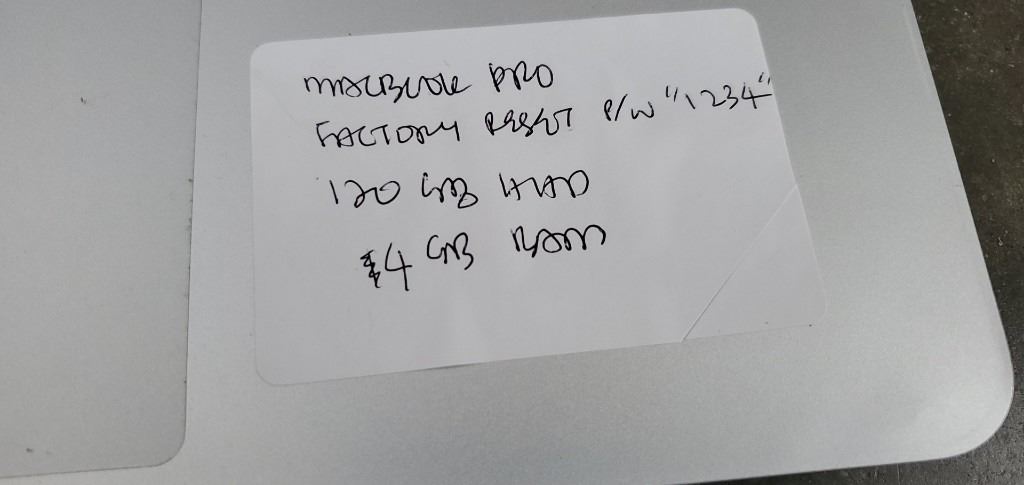 MACBOOK PRO
FACTORY RESET P/W "1234"
120 GB HDD
4 GB RAM